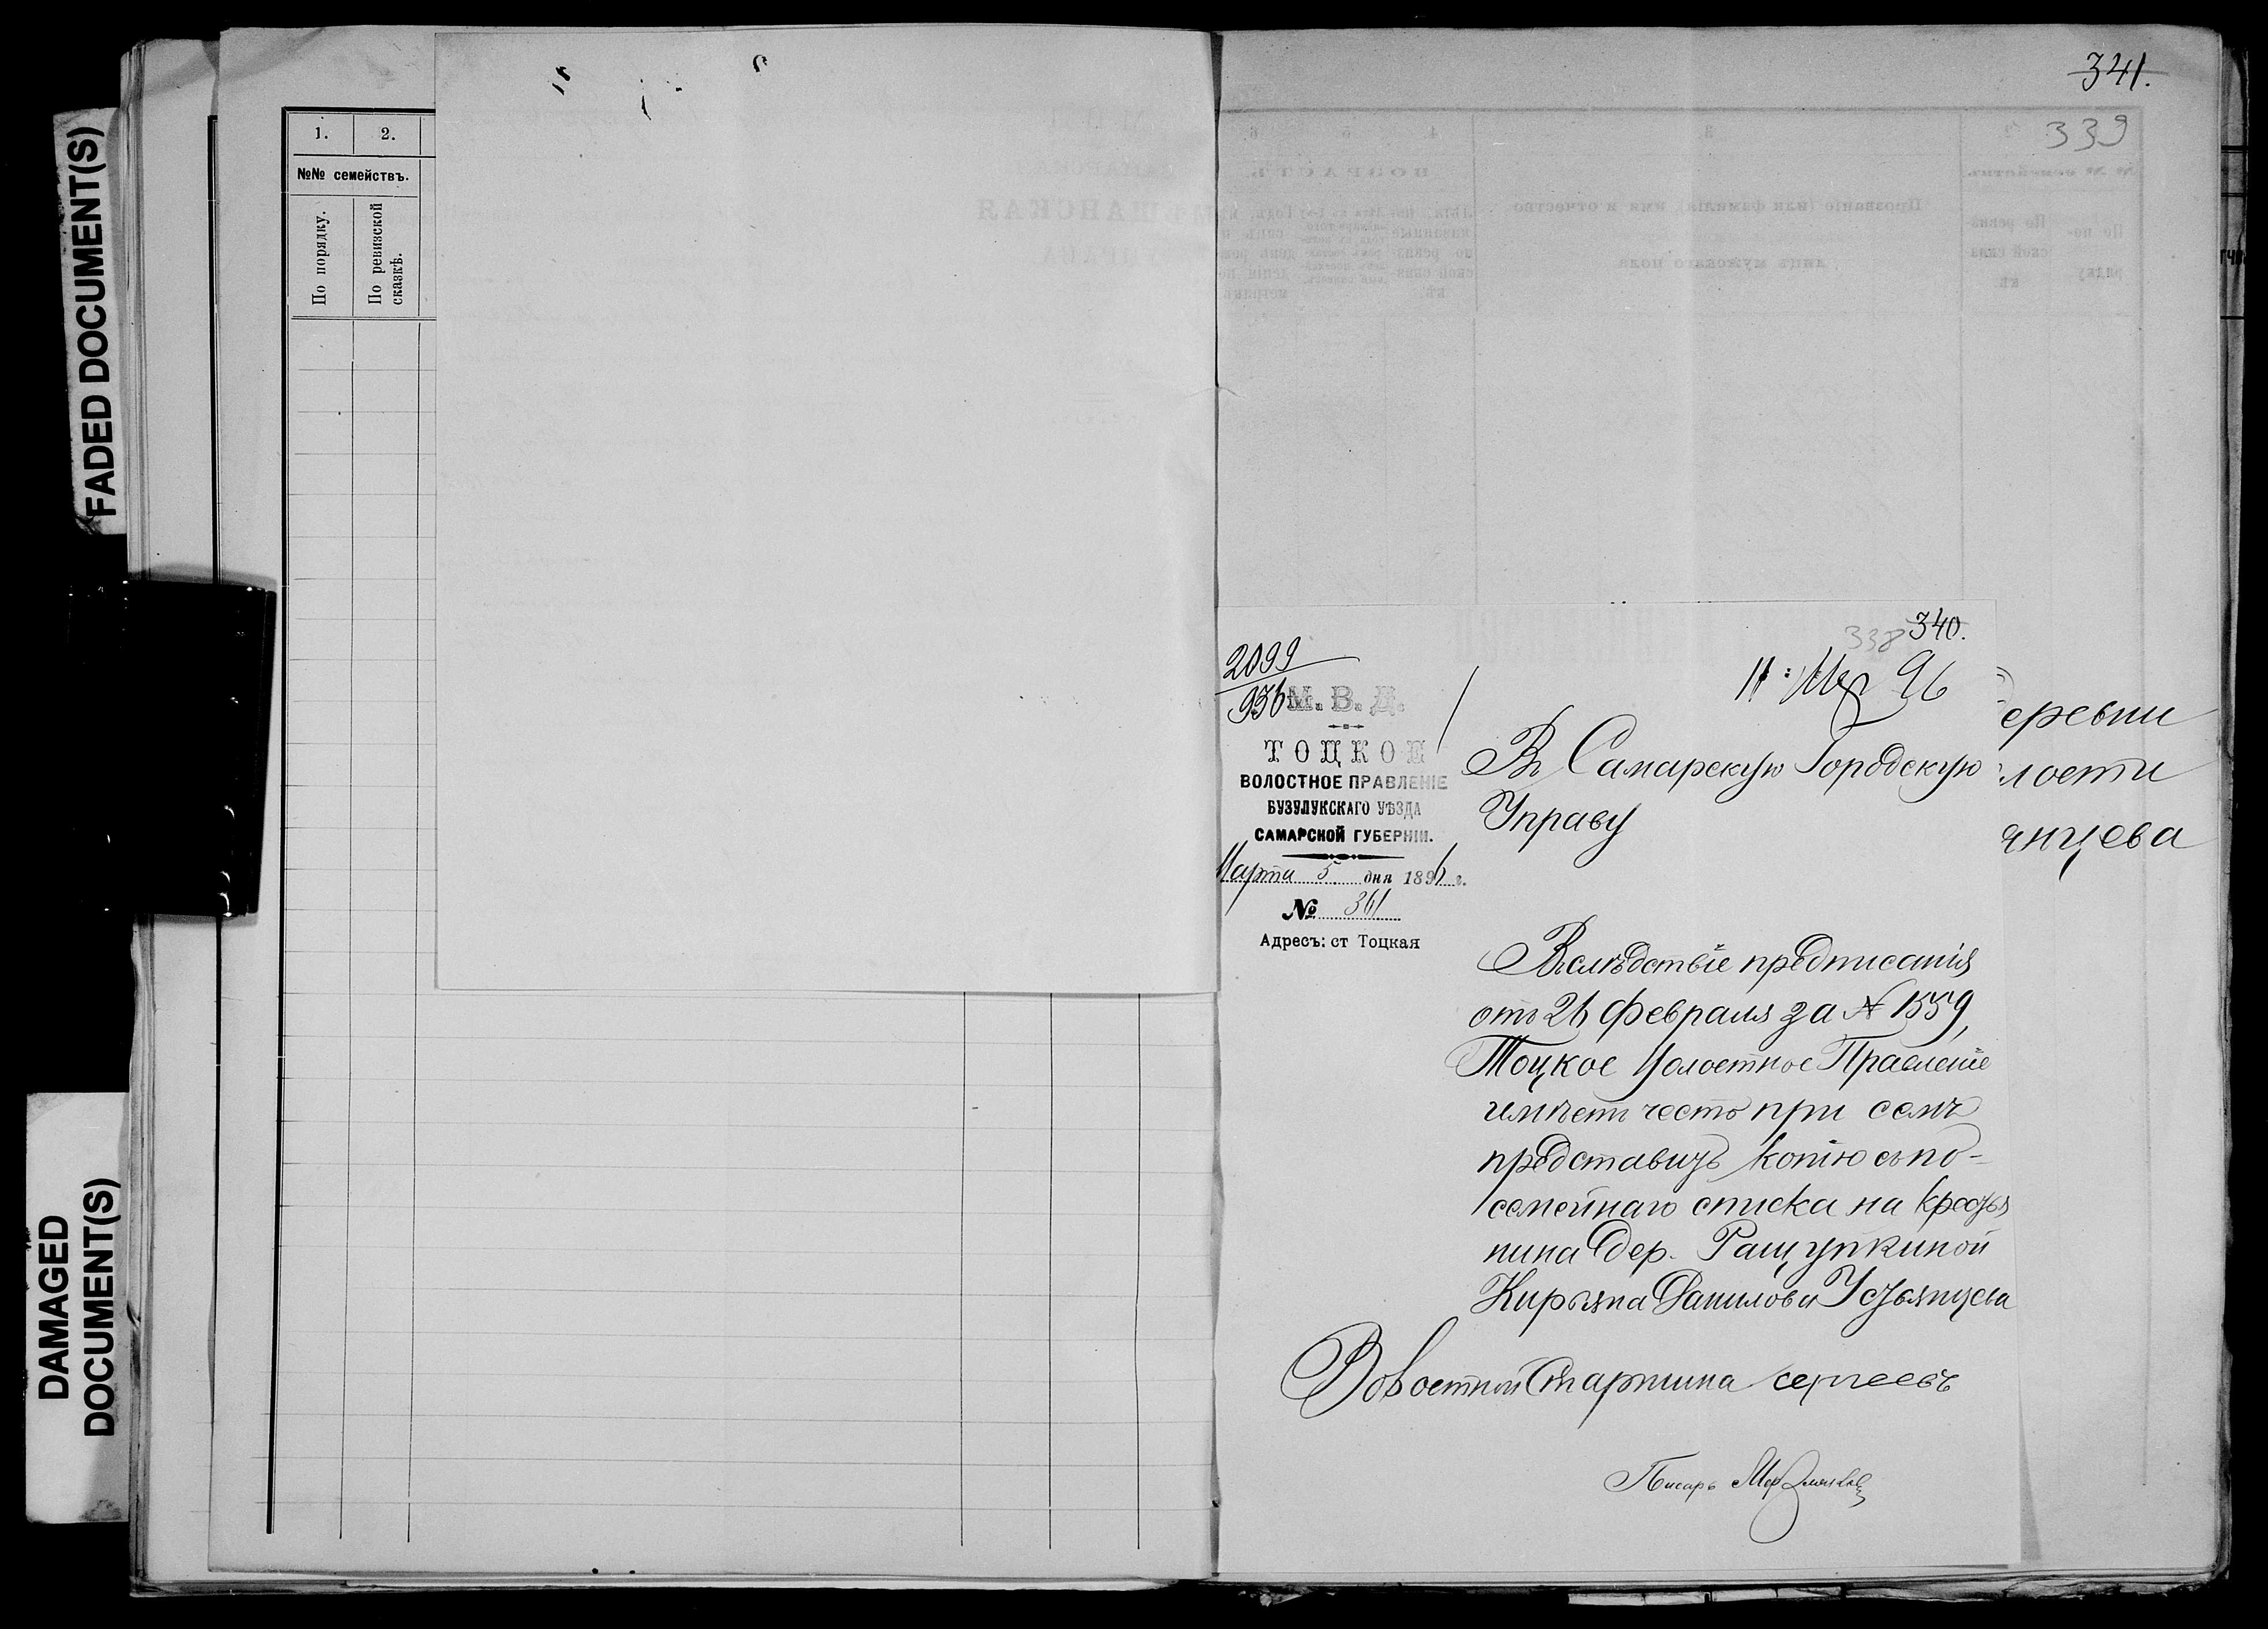 FADED DOCUMENT(S)
DAMAGED
DOCUMENT(S)
1. 2.
№№ семействъ.
По порядку.
По ревизской
сказкѣ.
341.
339
338 340.
2099
936
11 Мар 96
М. В. Д.
ТОЦКОЕ
ВОЛОСТНОЕ ПРАВЛЕНІЕ
БУЗУЛУКСКАГО УѢЗДА
САМАРСКОЙ ГУБЕРНІИ.
Марта 5 дня 1896 г.
№ 361
Адресъ: ст Тоцкая
Въ Самарскую Городскую
Управу
еревни
лости
янцева
Вслѣдствіе предписанія
отъ 26 февраля за № 1559,
Тоцкое Волостное Правленіе
имѣетъ честь при семъ
представить копію съ по-
семейнаго списка на кресть
нина дер. Ращупкиной
Кирьяна Данилова Устьянцева
Волостной Старшина сергеевъ
Писарь